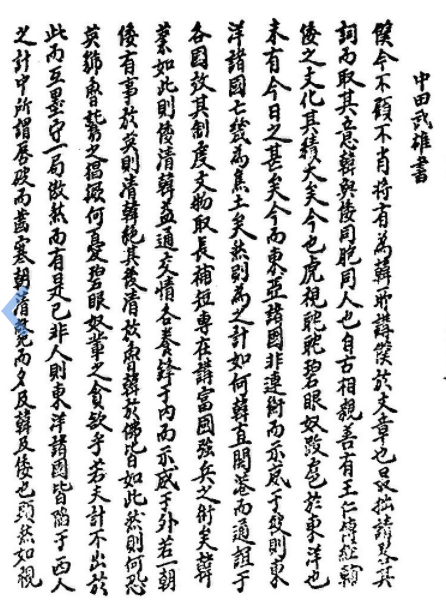 中田武雄書
僕今不顧不肖将有為韓所講僕於文章也最拙請其
詞而取其意韓與倭同胞同人也自古相親善有王仁傳經韓
倭之文化其績大矣今也虎視眈眈碧眼奴跋扈於東洋也
未有今日之甚矣今而東亞諸國非連衡而示威于彼則東
洋諸國七為焦土矣然則為之計如何韓直開港而通誼于
各国效其制度文物取長補短専在講富国強兵之術矣韓
業如此則倭清韓益通交情各養鋒于内而示威于外若一朝
倭有事於英則清韓絶其後清於魯韓於佛皆如此然則何恐
英獅魯鷲之猖獗何憂碧眼奴輩之貪欲乎若夫計不出於
此而互墨守一局傲然而有日是己非人則東洋諸國皆陥于西人
之計中所謂唇破而歯寒朝清斃而夕及韓及倭也顕然如視